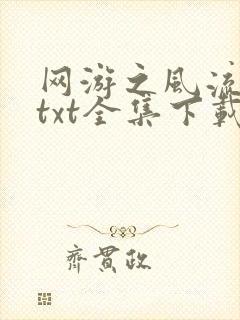 网游之风流
txt全集下载
齐贯政